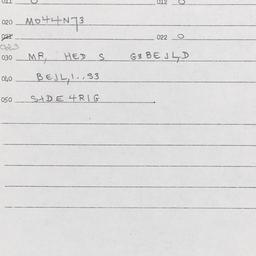 021 0 012 0
020 MO44N73
022 022 0
023
030 MR, HED S G8BEJL,D
040 BEJL,1..93
050 S+DE 4RIG